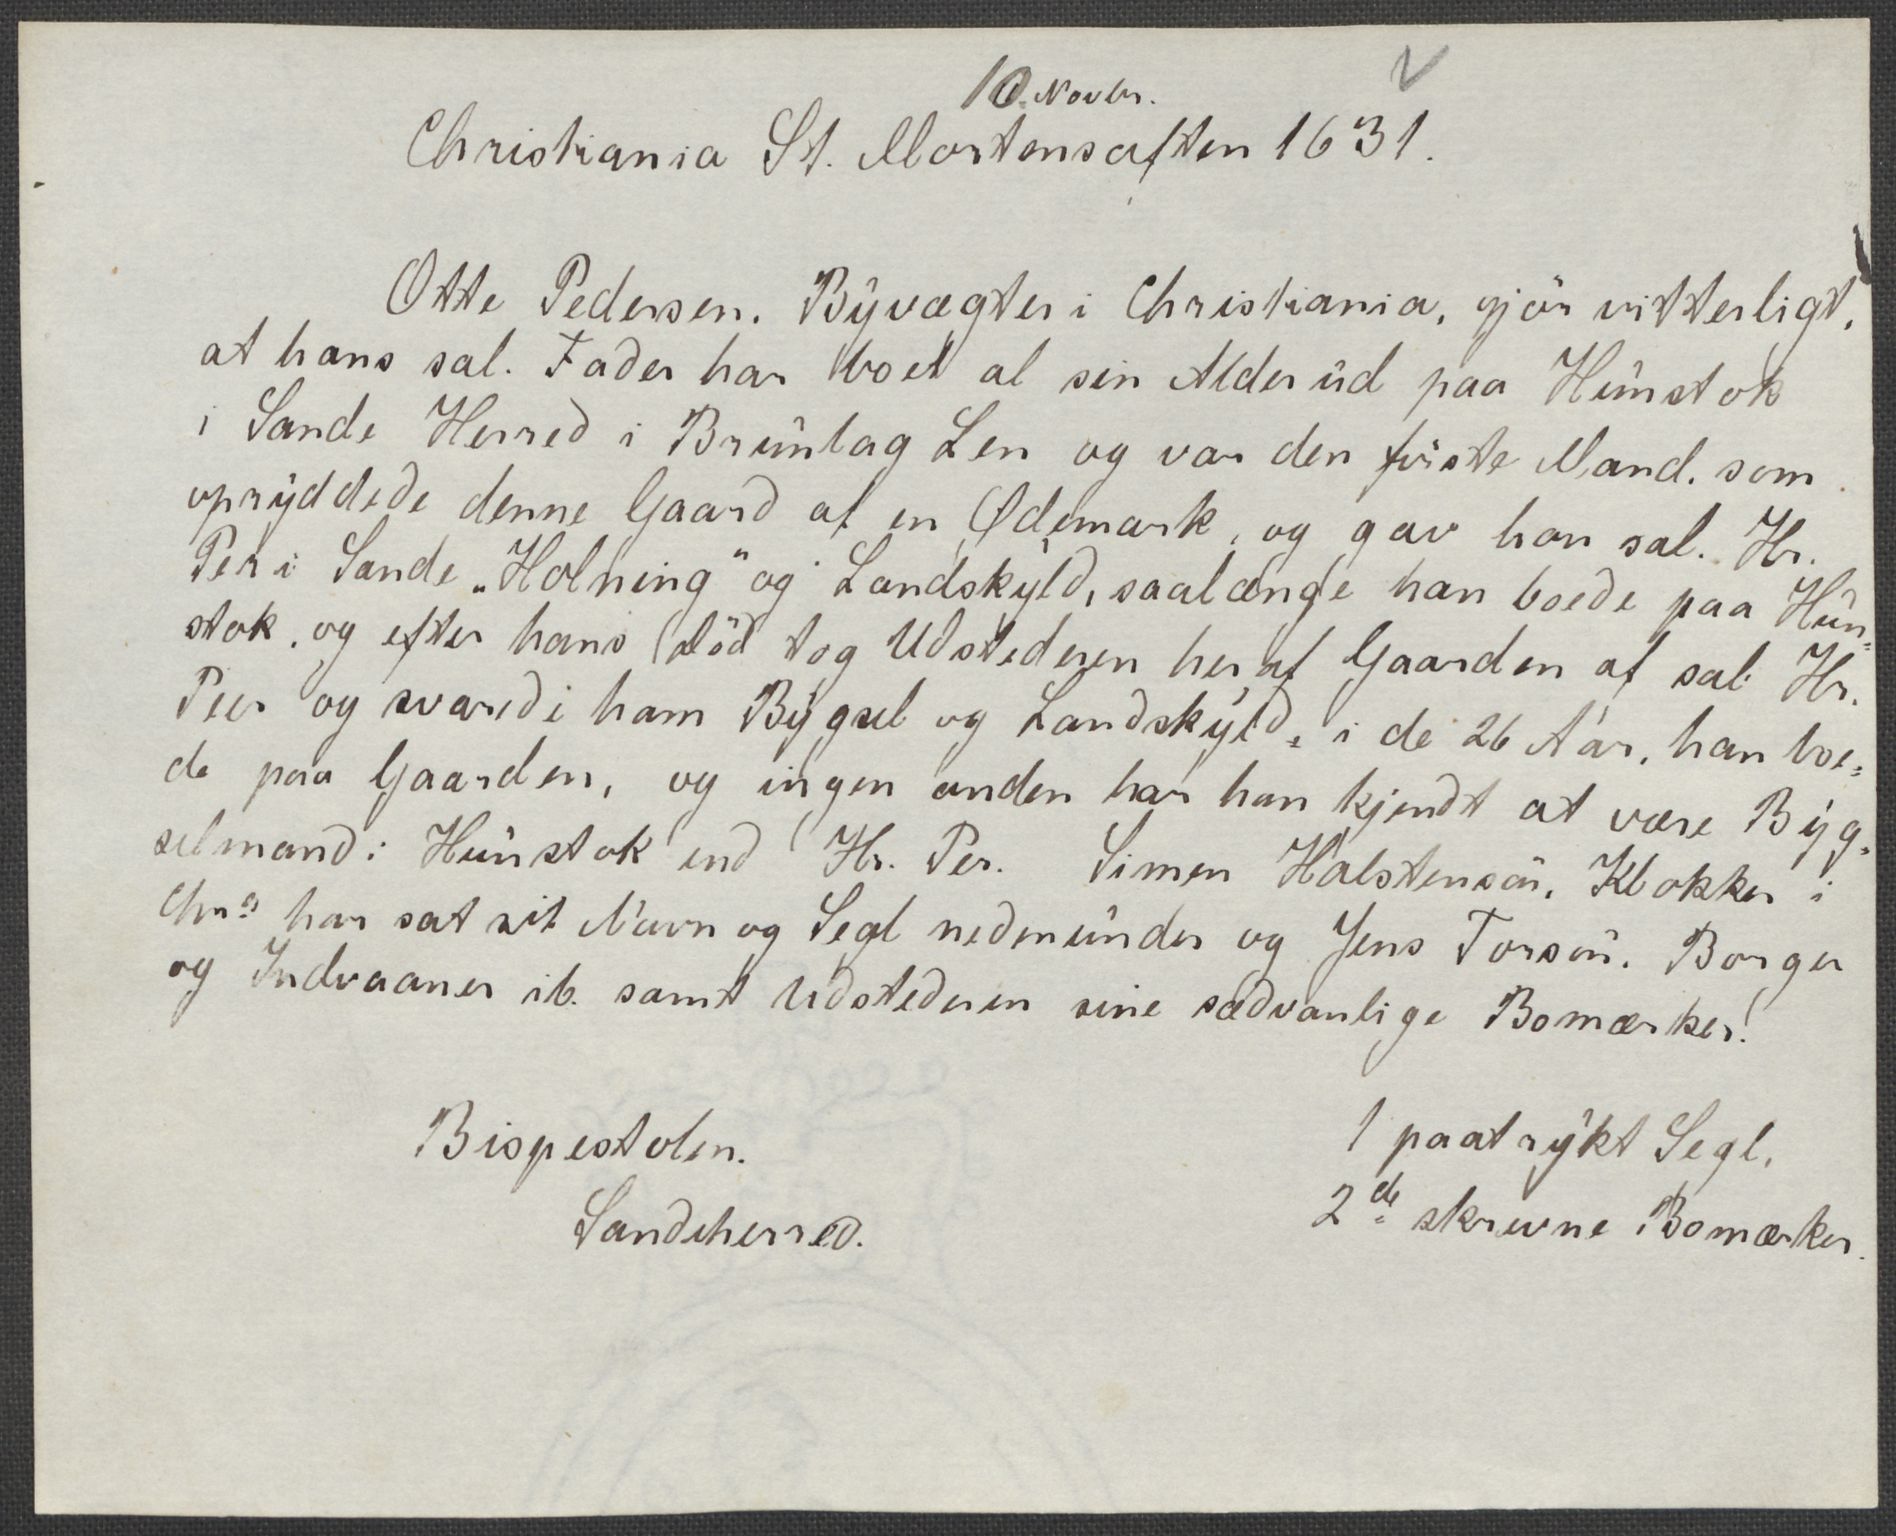 10. Novbr.
Christiania St. Mortensaften 1631.
Otte Pedersen. Byvægter i Christiania, gjör vitterligt,
at hans sal. Fader har boet al sin Alder ud paa Hunstok
i Sande Herred i Brunlag Len og var den förste Mand. som
opryddede denne Gaard af en Ødemark, og gav han sal. Hr.
Per i Sande „Holning" og Landskyld, saalænge han boede paa Hun-
stok. og efter hans Död tog Udstederen heraf Gaarden af sal. Hr.
Peer og svarede ham Bygsel og Landskyld, i de 26 Aar, han boe-
de paa Gaarden, og ingen anden har han kjendt at være Byg-
selmand i Hunstok end Hr. Per. Simen Halstensön, Klokker i
Chra har sat sit Navn og Segl nedenunder og Jens Torsön. Borger
og Indvaaner ib. samt Udstederen sine sædvanlige Bomærker.
Bispestolen.
Sandeherred.
1 paatrykt Segl,
2de skrevne Bomærker.